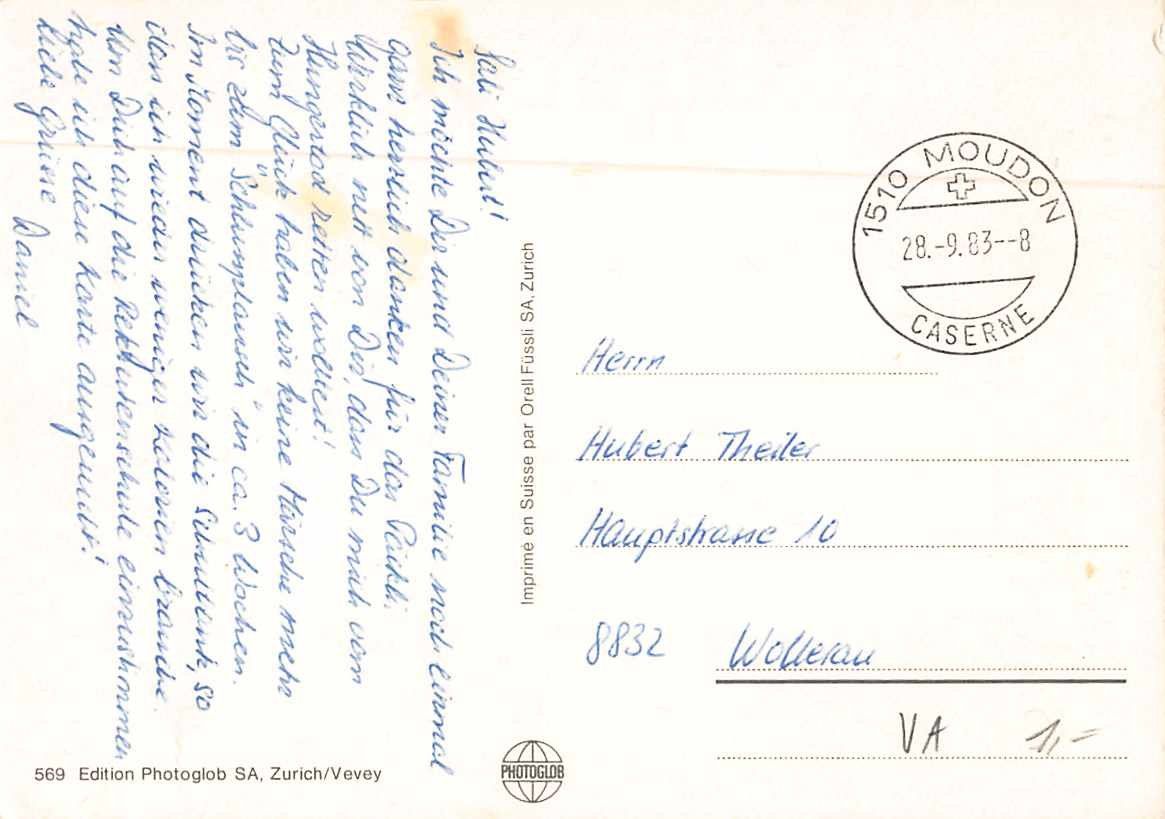 Sali Hubert!
Ich möchte Dir und Deiner Familie noch einmal
ganz herzlich danken für das Päckli.
Wirklich nett von Dir, dass Du mich vom
Hungertod retten wolltest!
Zum Glück haben wir keine Märsche mehr
bis zum "Schlumplausch" in ca. 3 Wochen.
Im Moment drücken wir die Schulbank, so
dass ich wieder weniger Kalorien brauche.
Um Dich auf die Rekrutenschule einzustimmen
habe ich diese Karte ausgewählt!
Liebe Grüsse Daniel
569 Edition Photoglob SA, Zurich/Vevey
Imprimé en Suisse par Orell Füssli SA, Zurich
PHOTOGLOB
1510 MOUDON
28.-9.83--8
CASERNE
Herrn
Hubert Theiler
Hauptstrasse 10
8832 Wollerau
VA 1,-